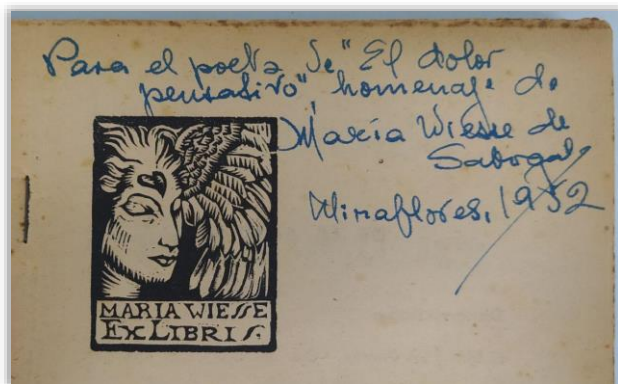 Para el poeta de "El dolor
pensativo" homenaje de
María Wiesse de
Sabogal
Miraflores, 1952
MARIA WIESSE
EX LIBRIS.